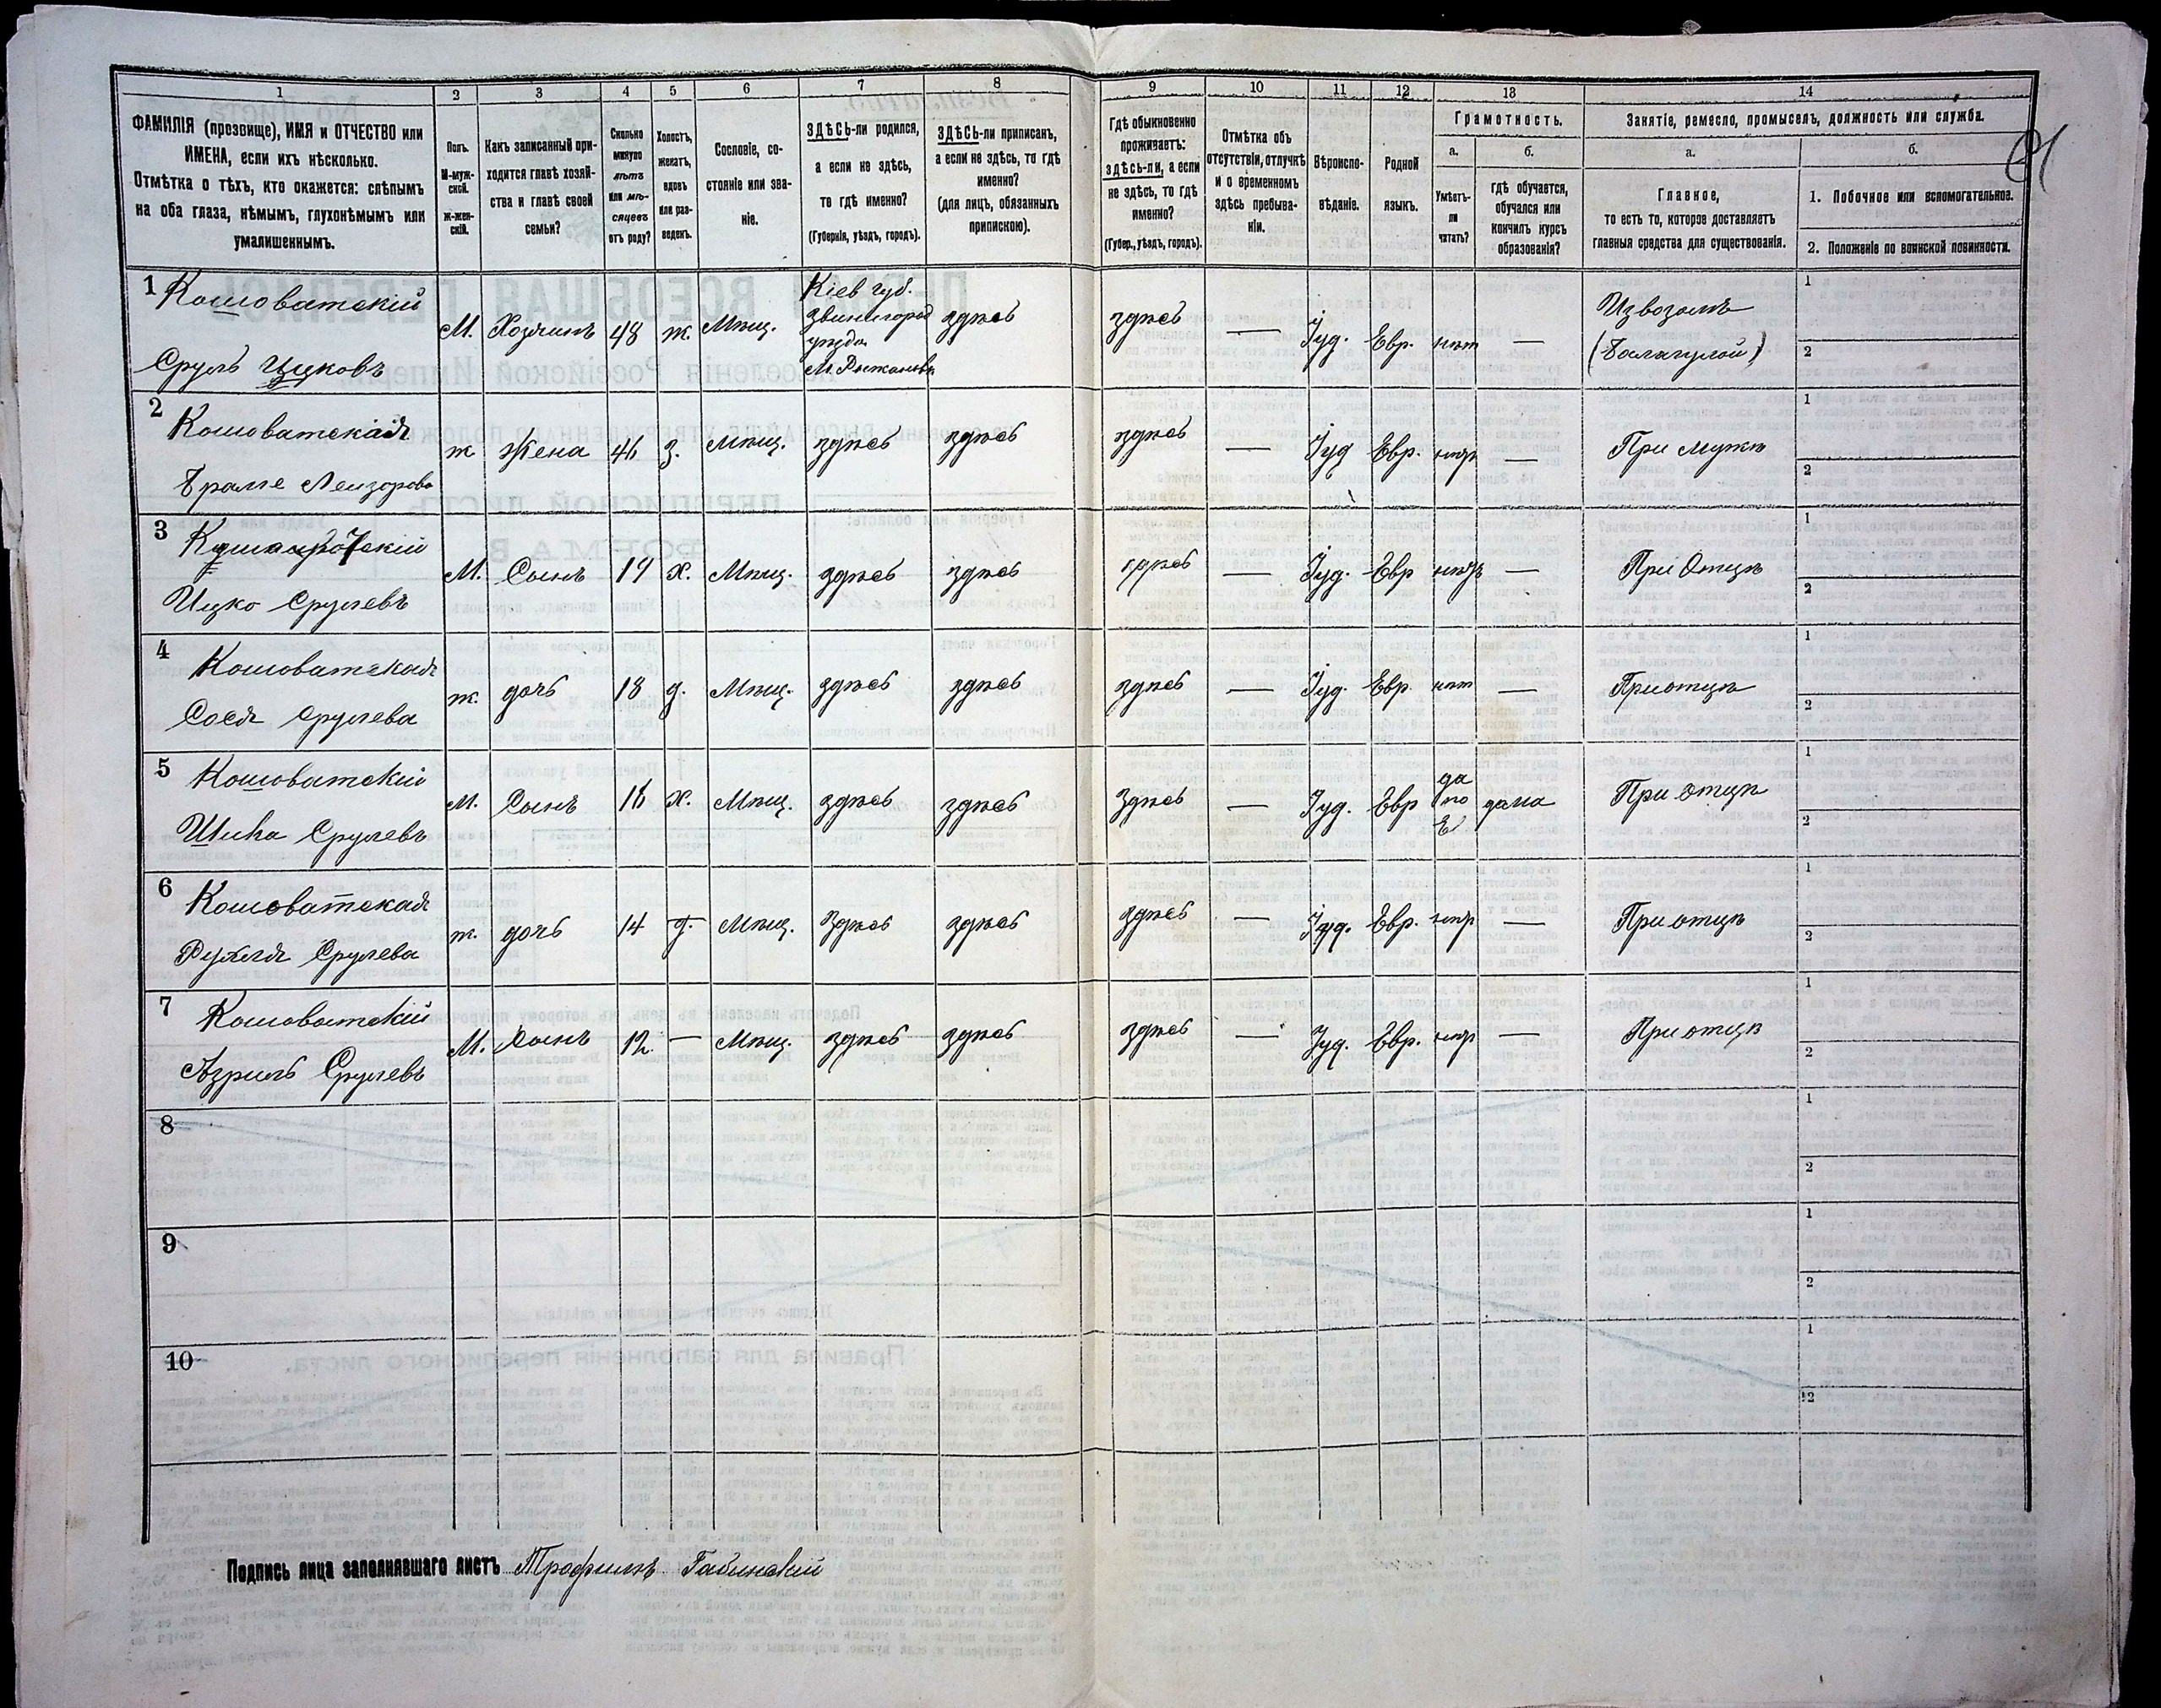 1 2 3 4 5 6 7 8 9 10 11 12 13 14
ФАМИЛІЯ (прозвище), ИМЯ и ОТЧЕСТВО или
ИМЕНА, если ихъ нѣсколько.
Отмѣтка о тѣхъ, кто окажется: слѣпымъ
на оба глаза, нѣмымъ, глухонѣмымъ или
умалишеннымъ.
Полъ.
М-муж-
ской.
Ж-жен-
скій.
Какъ записанный при-
ходится главѣ хозяй-
ства и главѣ своей
семьи?
Сколько
минуло
лѣтъ
или мѣ-
сяцевъ
отъ роду?
Холостъ,
женатъ,
вдовъ
или раз-
веденъ.
Сословіе, со-
стояніе или зва-
ніе.
ЗДѢСЬ-ли родился,
а если не здѣсь,
то гдѣ именно?
(Губернія, уѣздъ, городъ).
ЗДѢСЬ-ли приписанъ,
а если не здѣсь, то гдѣ
именно?
(для лицъ, обязанныхъ
припискою).
Гдѣ обыкновенно
проживаетъ:
здѣсь-ли, а если
не здѣсь, то гдѣ
именно?
(Губер., уѣздъ, городъ).
Отмѣтка объ
отсутствіи, отлучкѣ
и о временномъ
здѣсь пребыва-
ніи.
Вѣроиспо-
вѣданіе.
Родной
языкъ.
Грамотность.
а.
Умѣетъ-
ли
читать?
б.
гдѣ обучается,
обучался или
кончилъ курсъ
образованія?
Занятіе, ремесло, промыселъ, должность или служба.
а.
Главное,
то есть то, которое доставляетъ
главныя средства для существованія.
б.
1. Побочное или вспомогательное.
2. Положеніе по воинской повинности.
1 Кошоватскій
Сруль Ицковъ
М. Хозяинъ 48 ж. Мѣщ.
Кіев губ.
Звенигород
уѣзда
М. Рыжановка
здѣсь здѣсь — Іуд. Евр. нѣт —
Извозомъ
(балагулой)
1
2
2 Кошоватская
Лейзорова
ж Жена 46 з. Мѣщ. здѣсь здѣсь здѣсь — Іуд Евр. нѣтъ — При мужѣ
1
2
3
Ицко Срулевъ
М. Сынъ 19 х. Мѣщ. здѣсь здѣсь здѣсь — Іуд. Евр нѣтъ — При Отцѣ
1
2
4 Кошоватская
Сося Срулева
ж. дочь 18 д. Мѣщ. здѣсь здѣсь здѣсь — Іуд. Евр. нѣт — При отцѣ
1
2
5 Кошоватскій
Срулевъ
М. Сынъ 16 х. Мѣщ. здѣсь здѣсь здѣсь — Іуд. Евр
да
по
Е
дома При отцѣ
1
2
6 Кошоватская
Рухля Срулева
ж. дочь 14 д. Мѣщ. здѣсь здѣсь здѣсь — Іуд. Евр. нѣтъ — При отцѣ
1
2
7 Кошоватскій
Азриль Срулевъ
М. Сынъ 12 — Мѣщ. здѣсь здѣсь здѣсь — Іуд. Евр. нѣтъ — При отцѣ
1
2
8
1
2
9
1
2
10
1
2
Подпись лица заполнявшаго листъ Трофимъ Габинскій